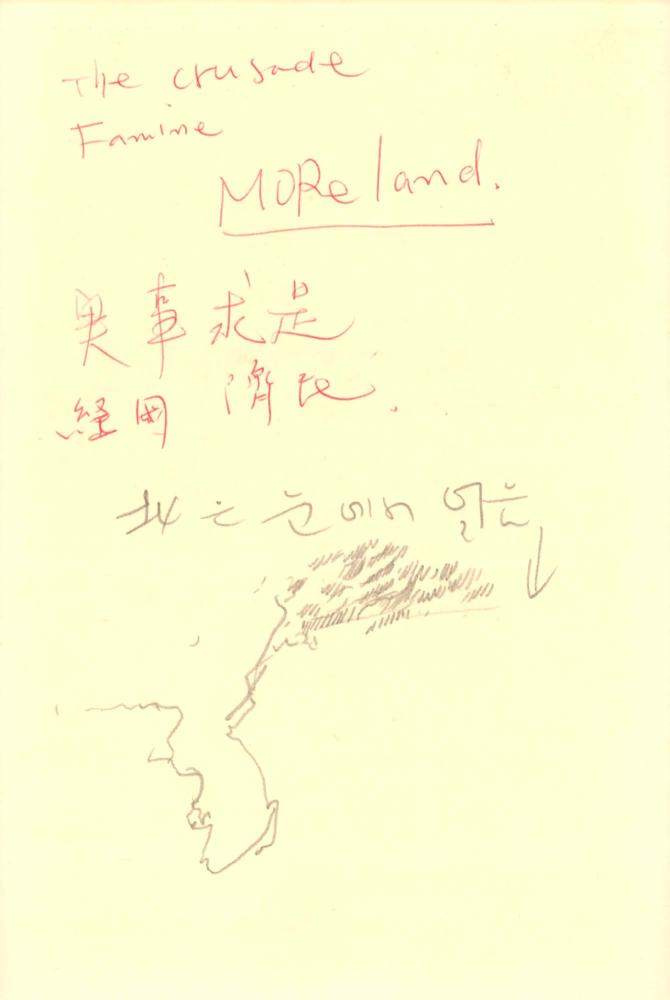 The crusade
Famine
MORe land.
実事求是
経国 濟民.
北은 눈에서